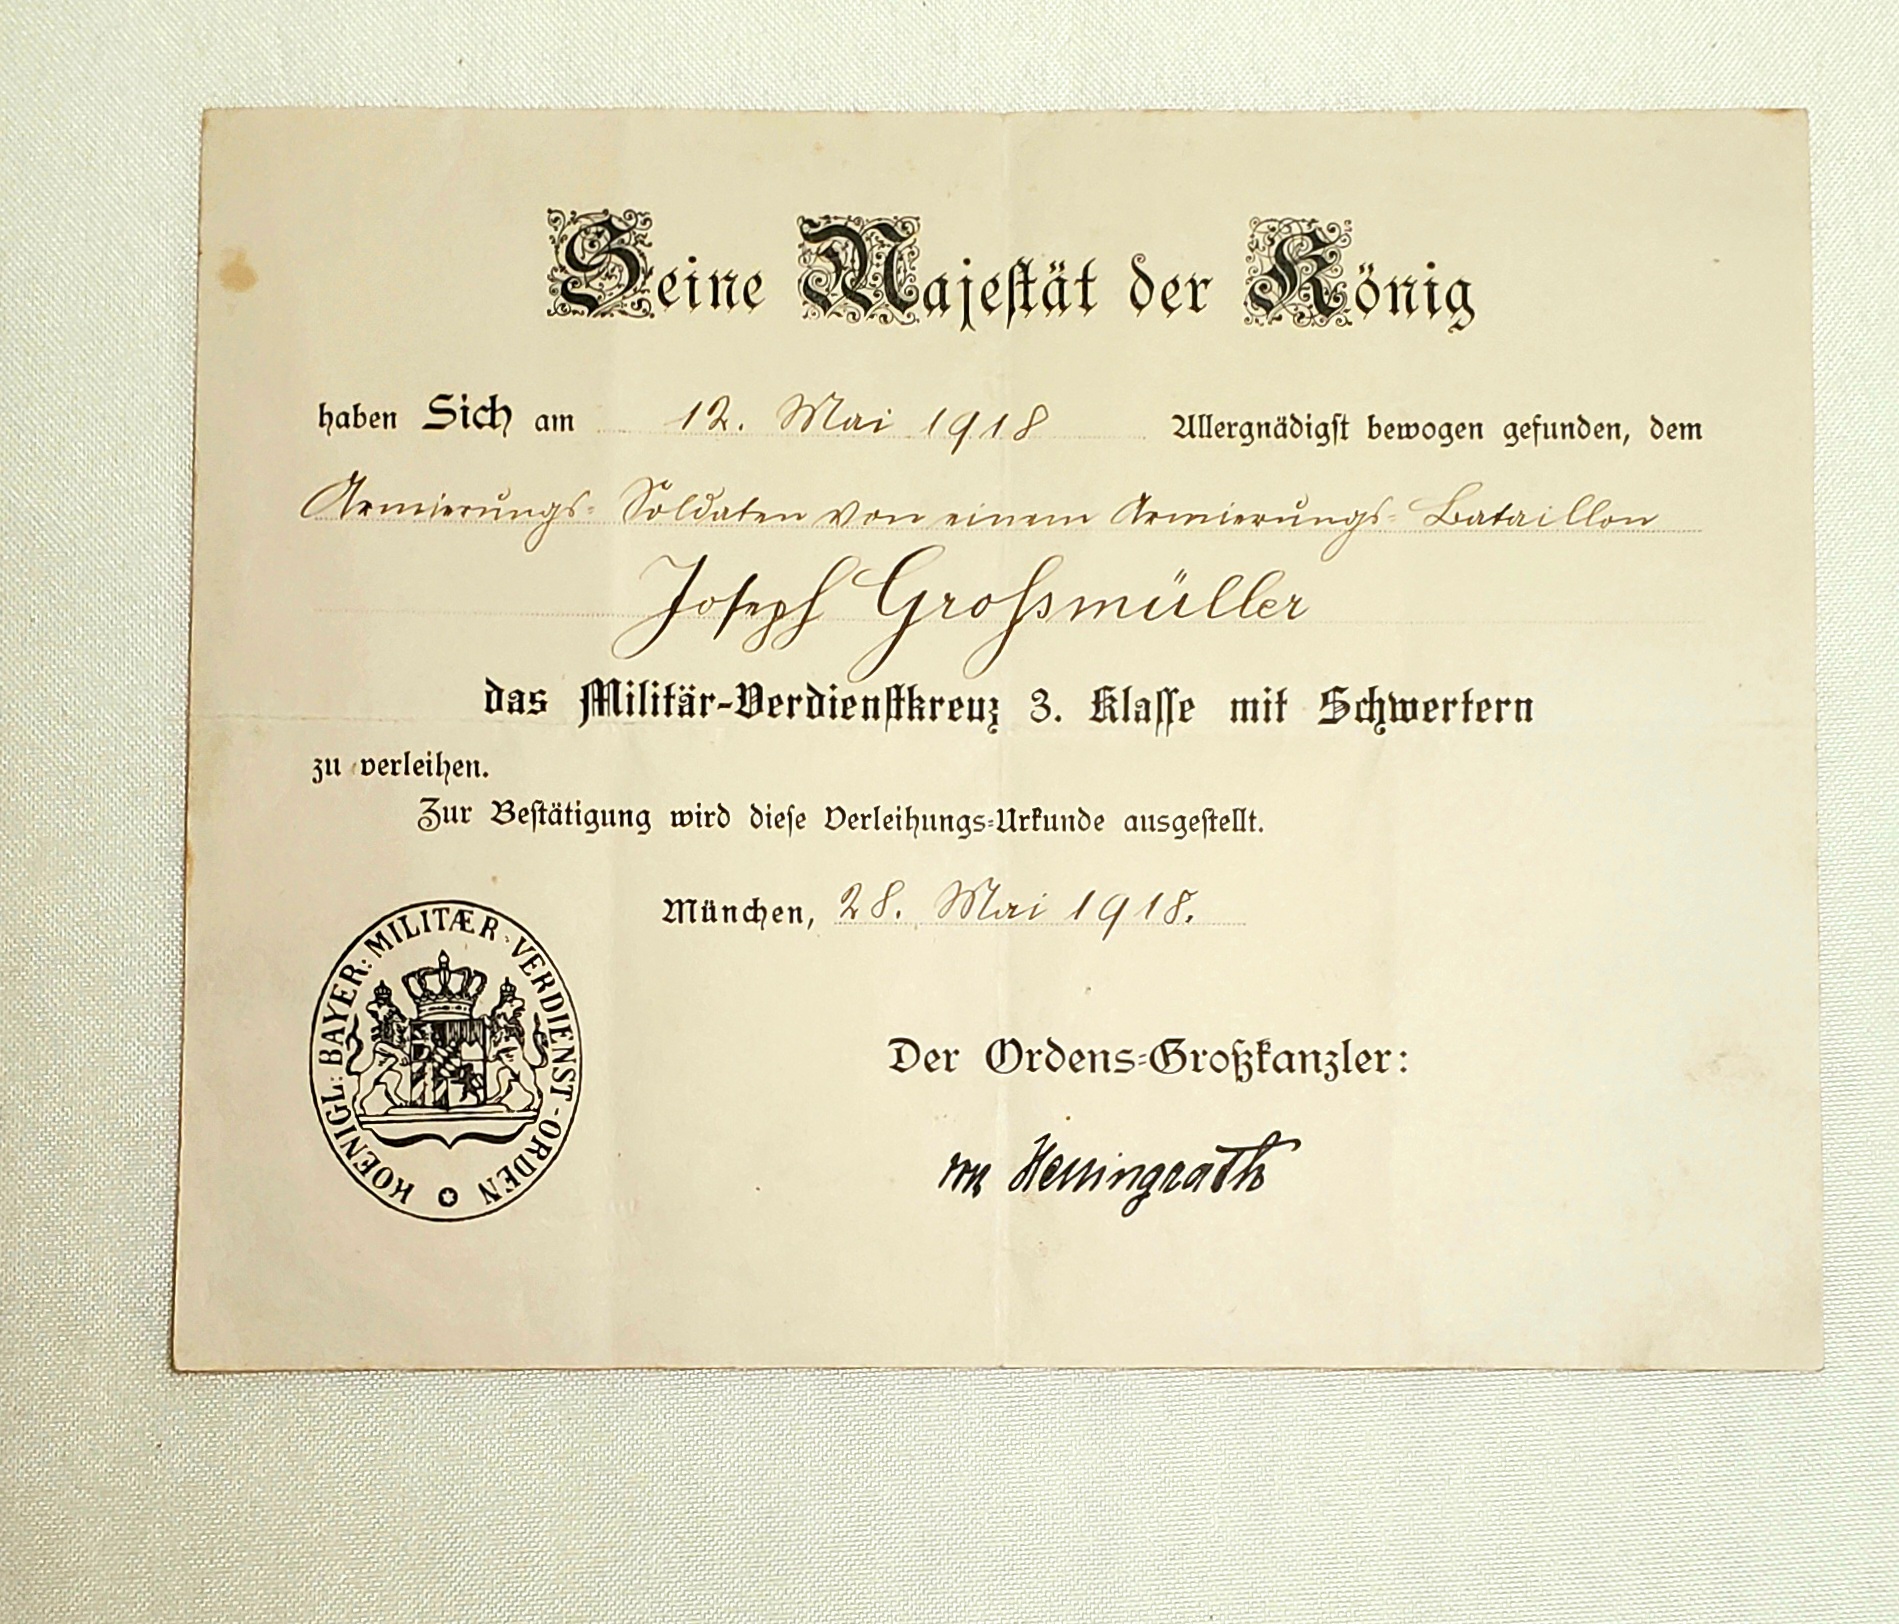 Seine Majestät der König
haben Sich am 12. Mai 1918 Allergnädigst bewogen gefunden, dem
Armierungs-Soldaten von einem Armierungs-Bataillon
Joseph Großmüller
das Militär-Verdienstkreuz 3. Klasse mit Schwertern
zu verleihen.
Zur Bestätigung wird diese Verleihungs-Urkunde ausgestellt.
München, 28. Mai 1918.
KOENIGL: BAYER: MILITÆR-VERDIENST-ORDEN
Der Ordens-Großkanzler:
von Hellingrath